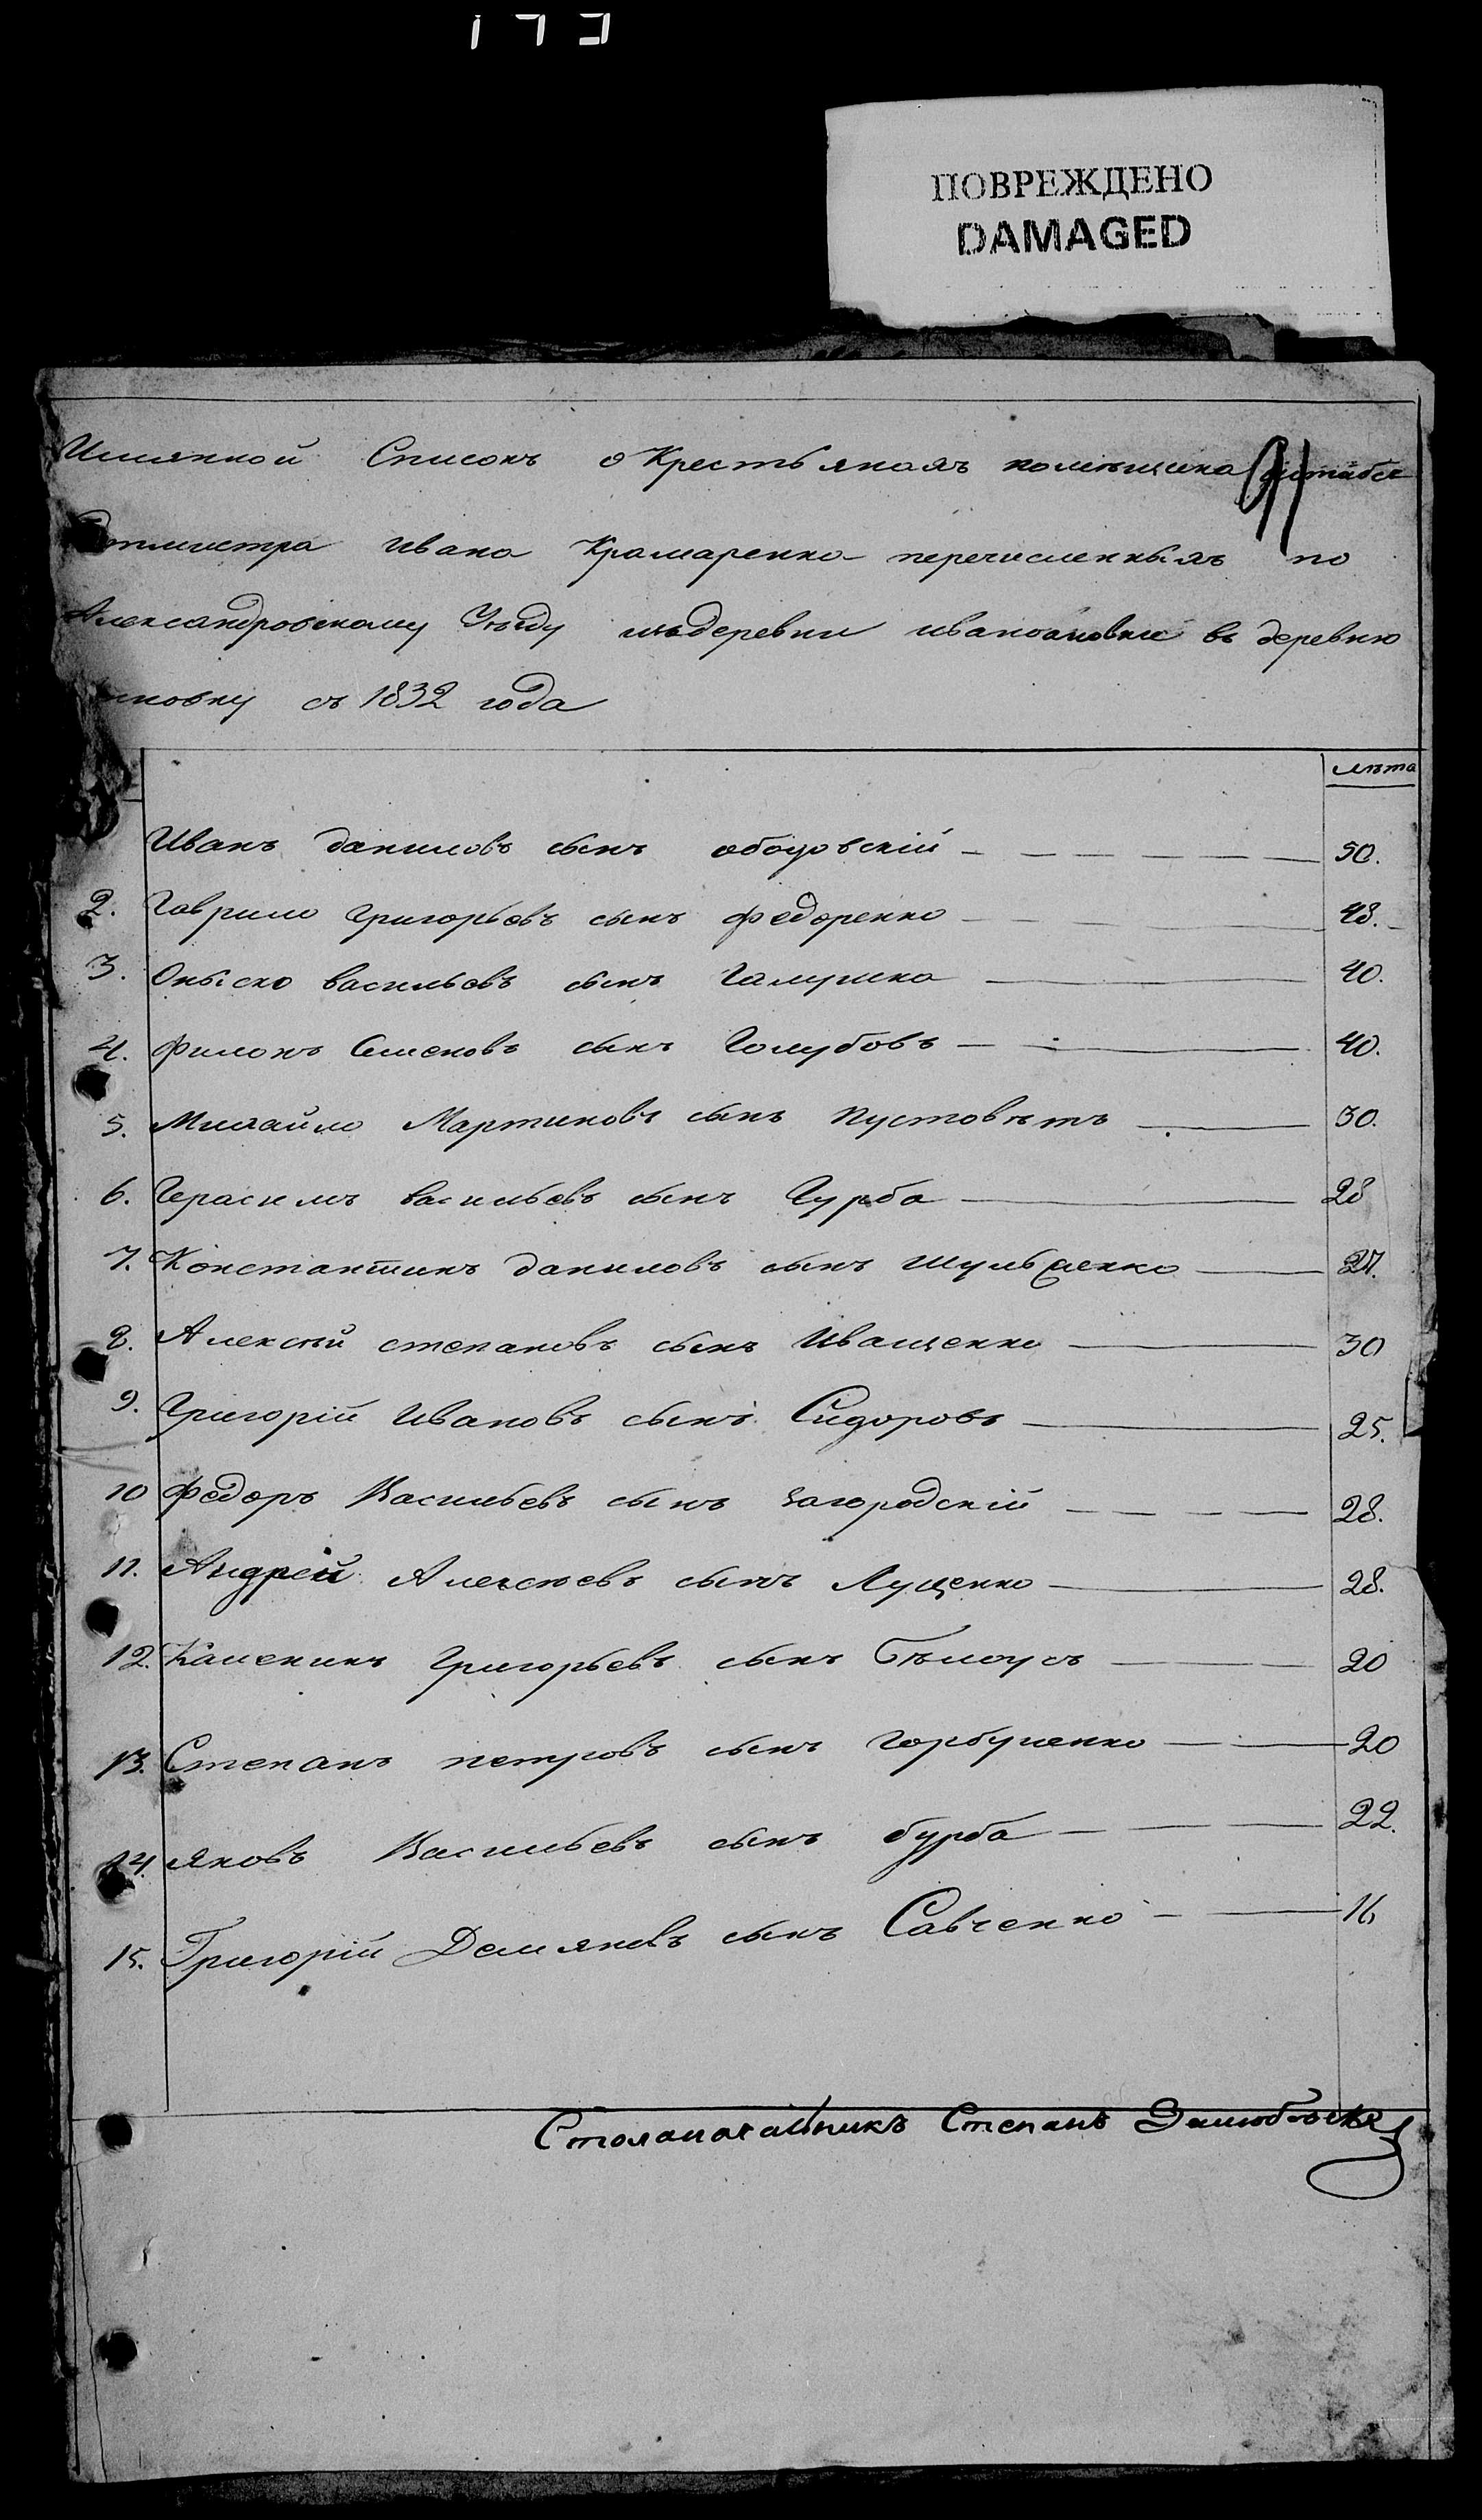 173
ПОВРЕЖДЕНО
DAMAGED
Имянной Списокъ о Крестьянахъ помѣщика штабсъ
91
Ротмистра Ивана Крамаренка перечисленныхъ по
Александровскому Уѣзду изъ деревни ивановки въ деревню
новку съ 1832 года
лѣта
Иванъ даниловъ сынъ ободовскій 50.
2. Гаврило Григорьевъ сынъ Федоренко 48.
3. Оныско васильевъ сынъ Галушка 40.
4. Филонъ Семеновъ сынъ Голубовъ 40.
5. Михайло Мартиновъ сынъ Пустовѣтъ 30.
6. Герасимъ васильевъ сынъ Гурба 28
7. Константинъ даниловъ сынъ Шульженко 27.
8. Алексѣй степановъ сынъ Иващенко 30
9. Григорій Ивановъ сынъ Сидоровъ 25.
10 Федоръ Васильевъ сынъ Загородскій 28.
11. Андрей Алексѣевъ сынъ Лущенко 28.
12. Каленикъ Григорьевъ сынъ Бѣлоусъ 20
13. Степанъ петровъ сынъ Горбушенко 20
14. Яковъ Васильевъ сынъ бурба 22.
15. Григорій Демяновъ сынъ Савченко 16
Столоначальникъ Степанъ